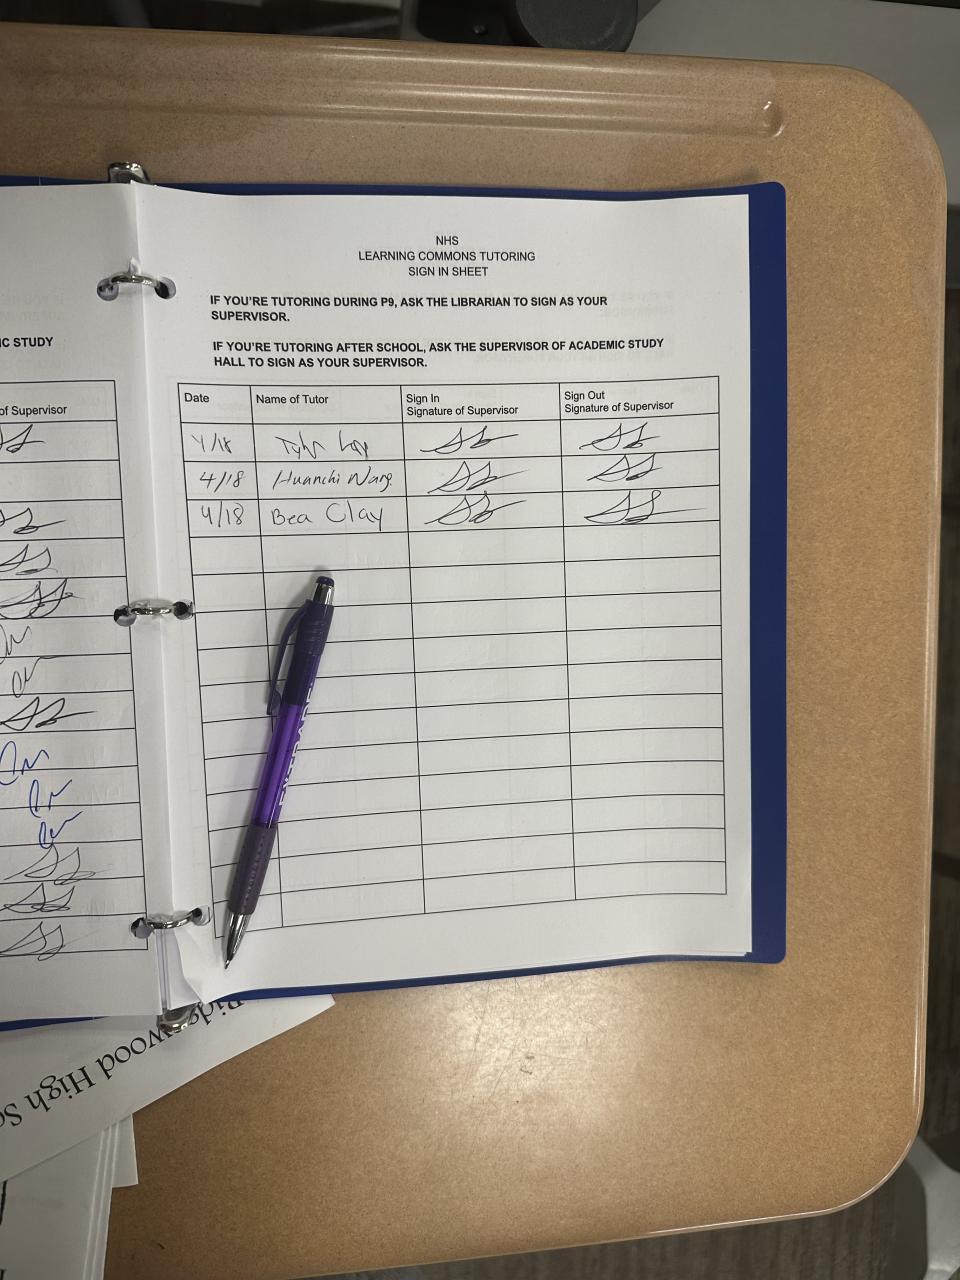 NHS
LEARNING COMMONS TUTORING
SIGN IN SHEET
IF YOU'RE TUTORING DURING P9, ASK THE LIBRARIAN TO SIGN AS YOUR
SUPERVISOR.
IF YOU'RE TUTORING AFTER SCHOOL, ASK THE SUPERVISOR OF ACADEMIC STUDY
HALL TO SIGN AS YOUR SUPERVISOR.
IC STUDY
of Supervisor
Date Name of Tutor Sign In Signature of Supervisor Sign Out Signature of Supervisor
4/18
4/18 Huanchi Wang
4/18 Bea Clay
Ridgewood High Sc